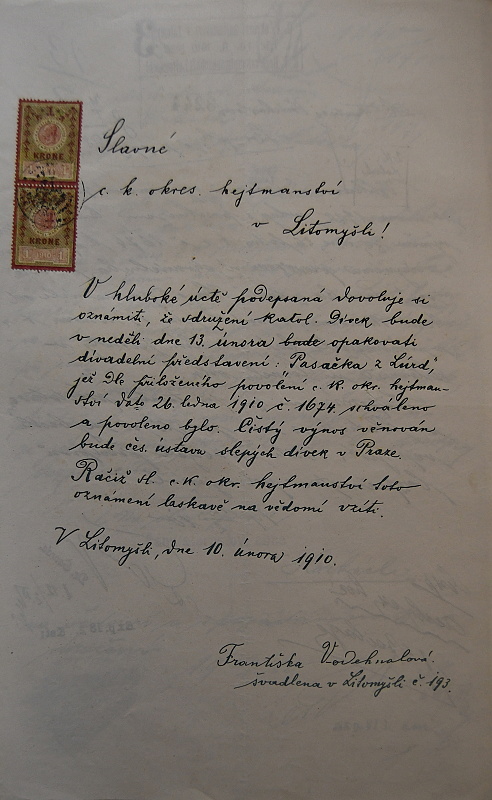 KRONE
KRONE
Slavné
c. k. okres. hejtmanství
v Litomyšli!
V hluboké úctě podepsaná dovoluje si
oznámiti, že sdružení katol. Dívek bude
v neděli dne 13. února bude opakovati
divadelní představení: Pasačka z Lúrd",
jež dle přiloženého povolení c. k. okr. hejtman-
ství dato 26. ledna 1910 č. 1674 schváleno
a povoleno bylo. Čistý výnos věnován
bude čes. ústavu slepých dívek v Praze.
Račiž sl. c. k. okr. hejtmanství toto
oznámení laskavě na vědomí vzíti.
V Litomyšli, dne 10. února 1910.
Františka Vodehnalová.
švadlena v Litomyšli č. 193.